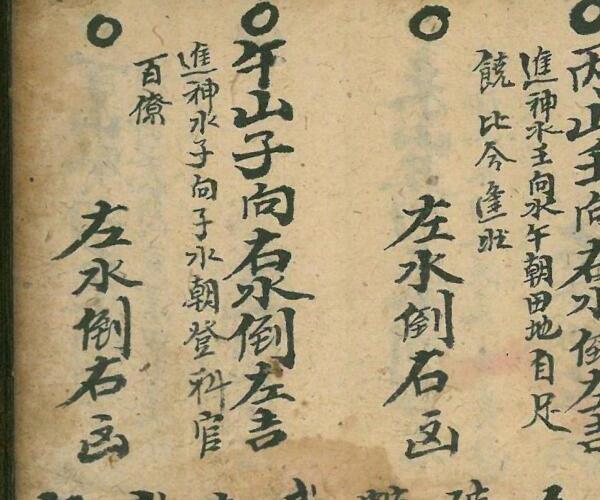 丙山壬向右水倒左吉
進神水壬向水午朝田地自足
饒 比令逢
左水倒右凶
午山子向右水倒左吉
進神水子向子水朝登科官
百僚
左水倒右凶